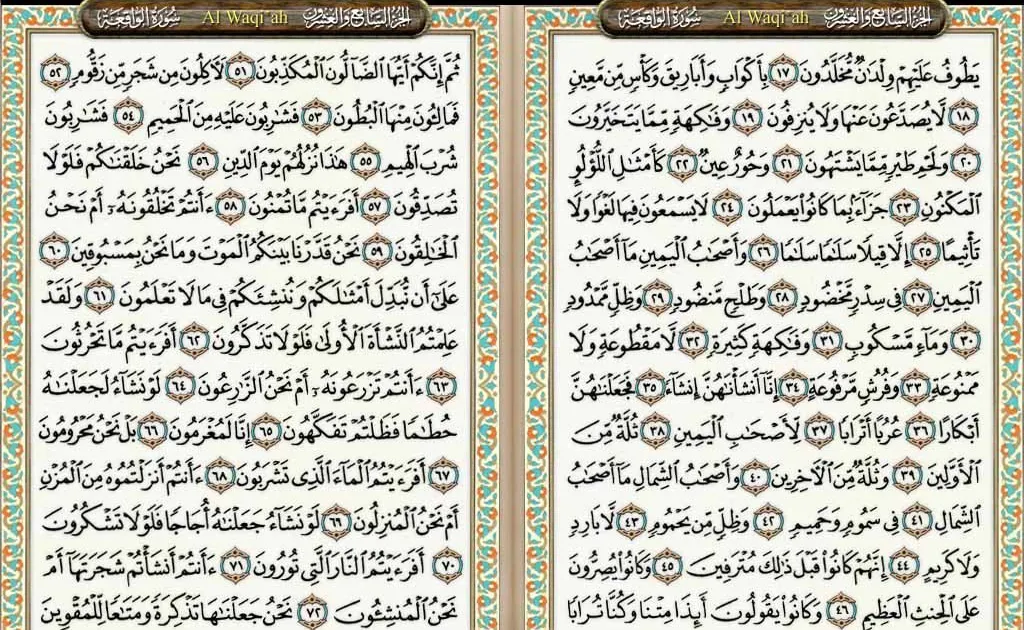 الجزء السابع والعشرون Al Waqi ah سورة الواقعة
يَطُوفُ عَلَيْهِمْ وِلْدَٰنٌ مُّخَلَّدُونَ ١٧ بِأَكْوَابٍ وَأَبَارِيقَ وَكَأْسٍ مِّن مَّعِينٍ
١٨ لَّا يُصَدَّعُونَ عَنْهَا وَلَا يُنزِفُونَ ١٩ وَفَٰكِهَةٍ مِّمَّا يَتَخَيَّرُونَ
٢٠ وَلَحْمِ طَيْرٍ مِّمَّا يَشْتَهُونَ ٢١ وَحُورٌ عِينٌ ٢٢ كَأَمْثَٰلِ اللُّؤْلُؤِ
الْمَكْنُونِ ٢٣ جَزَآءً بِمَا كَانُوا يَعْمَلُونَ ٢٤ لَا يَسْمَعُونَ فِيهَا لَغْوًا وَلَا
تَأْثِيمًا ٢٥ إِلَّا قِيلًا سَلَٰمًا سَلَٰمًا ٢٦ وَأَصْحَٰبُ الْيَمِينِ مَآ أَصْحَٰبُ
الْيَمِينِ ٢٧ فِى سِدْرٍ مَّخْضُودٍ ٢٨ وَطَلْحٍ مَّنضُودٍ ٢٩ وَظِلٍّ مَّمْدُودٍ
٣٠ وَمَآءٍ مَّسْكُوبٍ ٣١ وَفَٰكِهَةٍ كَثِيرَةٍ ٣٢ لَّا مَقْطُوعَةٍ وَلَا
مَمْنُوعَةٍ ٣٣ وَفُرُشٍ مَّرْفُوعَةٍ ٣٤ إِنَّآ أَنشَأْنَٰهُنَّ إِنشَآءً ٣٥ فَجَعَلْنَٰهُنَّ
أَبْكَارًا ٣٦ عُرُبًا أَتْرَابًا ٣٧ لِّأَصْحَٰبِ الْيَمِينِ ٣٨ ثُلَّةٌ مِّنَ
الْأَوَّلِينَ ٣٩ وَثُلَّةٌ مِّنَ الْآخِرِينَ ٤٠ وَأَصْحَٰبُ الشِّمَالِ مَآ أَصْحَٰبُ
الشِّمَالِ ٤١ فِى سَمُومٍ وَحَمِيمٍ ٤٢ وَظِلٍّ مِّن يَحْمُومٍ ٤٣ لَّا بَارِدٍ
وَلَا كَرِيمٍ ٤٤ إِنَّهُمْ كَانُوا قَبْلَ ذَٰلِكَ مُتْرَفِينَ ٤٥ وَكَانُوا يُصِرُّونَ
عَلَى الْحِنثِ الْعَظِيمِ ٤٦ وَكَانُوا يَقُولُونَ أَئِذَا مِتْنَا وَكُنَّا تُرَابًا
الجزء السابع والعشرون Al Waqi ah سورة الواقعة
ثُمَّ إِنَّكُمْ أَيُّهَا الضَّآلُّونَ الْمُكَذِّبُونَ ٥١ لَآكِلُونَ مِن شَجَرٍ مِّن زَقُّومٍ ٥٢
فَمَالِئُونَ مِنْهَا الْبُطُونَ ٥٣ فَشَٰرِبُونَ عَلَيْهِ مِنَ الْحَمِيمِ ٥٤ فَشَٰرِبُونَ
شُرْبَ الْهِيمِ ٥٥ هَٰذَا نُزُلُهُمْ يَوْمَ الدِّينِ ٥٦ نَحْنُ خَلَقْنَٰكُمْ فَلَوْلَا
تُصَدِّقُونَ ٥٧ أَفَرَءَيْتُم مَّا تُمْنُونَ ٥٨ ءَأَنتُمْ تَخْلُقُونَهُۥٓ أَمْ نَحْنُ
الْخَٰلِقُونَ ٥٩ نَحْنُ قَدَّرْنَا بَيْنَكُمُ الْمَوْتَ وَمَا نَحْنُ بِمَسْبُوقِينَ ٦٠
عَلَىٰٓ أَن نُّبَدِّلَ أَمْثَٰلَكُمْ وَنُنشِئَكُمْ فِى مَا لَا تَعْلَمُونَ ٦١ وَلَقَدْ
عَلِمْتُمُ النَّشْأَةَ الْأُولَىٰ فَلَوْلَا تَذَكَّرُونَ ٦٢ أَفَرَءَيْتُم مَّا تَحْرُثُونَ
٦٣ ءَأَنتُمْ تَزْرَعُونَهُۥٓ أَمْ نَحْنُ الزَّٰرِعُونَ ٦٤ لَوْ نَشَآءُ لَجَعَلْنَٰهُ
حُطَٰمًا فَظَلْتُمْ تَفَكَّهُونَ ٦٥ إِنَّا لَمُغْرَمُونَ ٦٦ بَلْ نَحْنُ مَحْرُومُونَ
٦٧ أَفَرَءَيْتُمُ الْمَآءَ الَّذِى تَشْرَبُونَ ٦٨ ءَأَنتُمْ أَنزَلْتُمُوهُ مِنَ الْمُزْنِ
أَمْ نَحْنُ الْمُنزِلُونَ ٦٩ لَوْ نَشَآءُ جَعَلْنَٰهُ أُجَاجًا فَلَوْلَا تَشْكُرُونَ
٧٠ أَفَرَءَيْتُمُ النَّارَ الَّتِى تُورُونَ ٧١ ءَأَنتُمْ أَنشَأْتُمْ شَجَرَتَهَآ أَمْ
نَحْنُ الْمُنشِئُونَ ٧٢ نَحْنُ جَعَلْنَٰهَا تَذْكِرَةً وَمَتَٰعًا لِّلْمُقْوِينَ